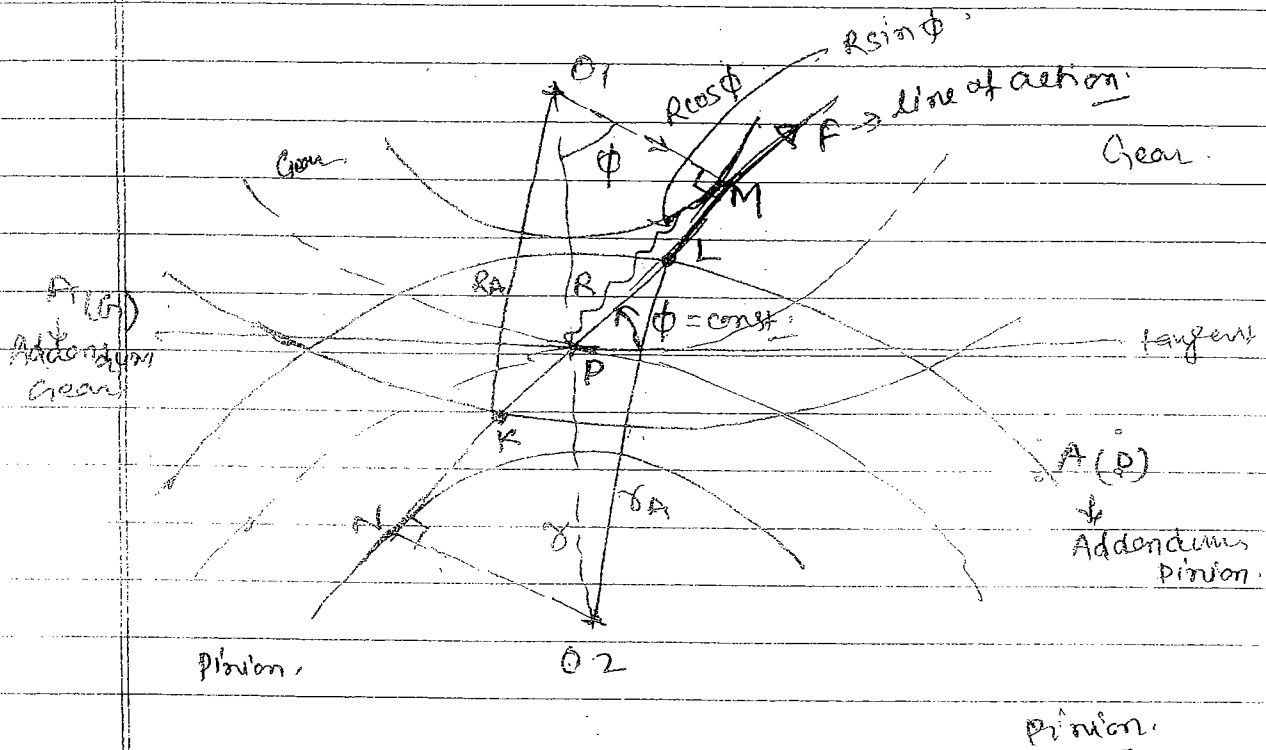 R sin ϕ
O1
R cos ϕ
F → line of action.
Gear
ϕ
Gear.
M
L
RA
R
A1 (G)
ϕ = const.
↓
Addendum
Gear
tangent
P
K
A (P)
↓
Addendum
pinion.
N
r
rA
Pinion.
O2
Pinion.